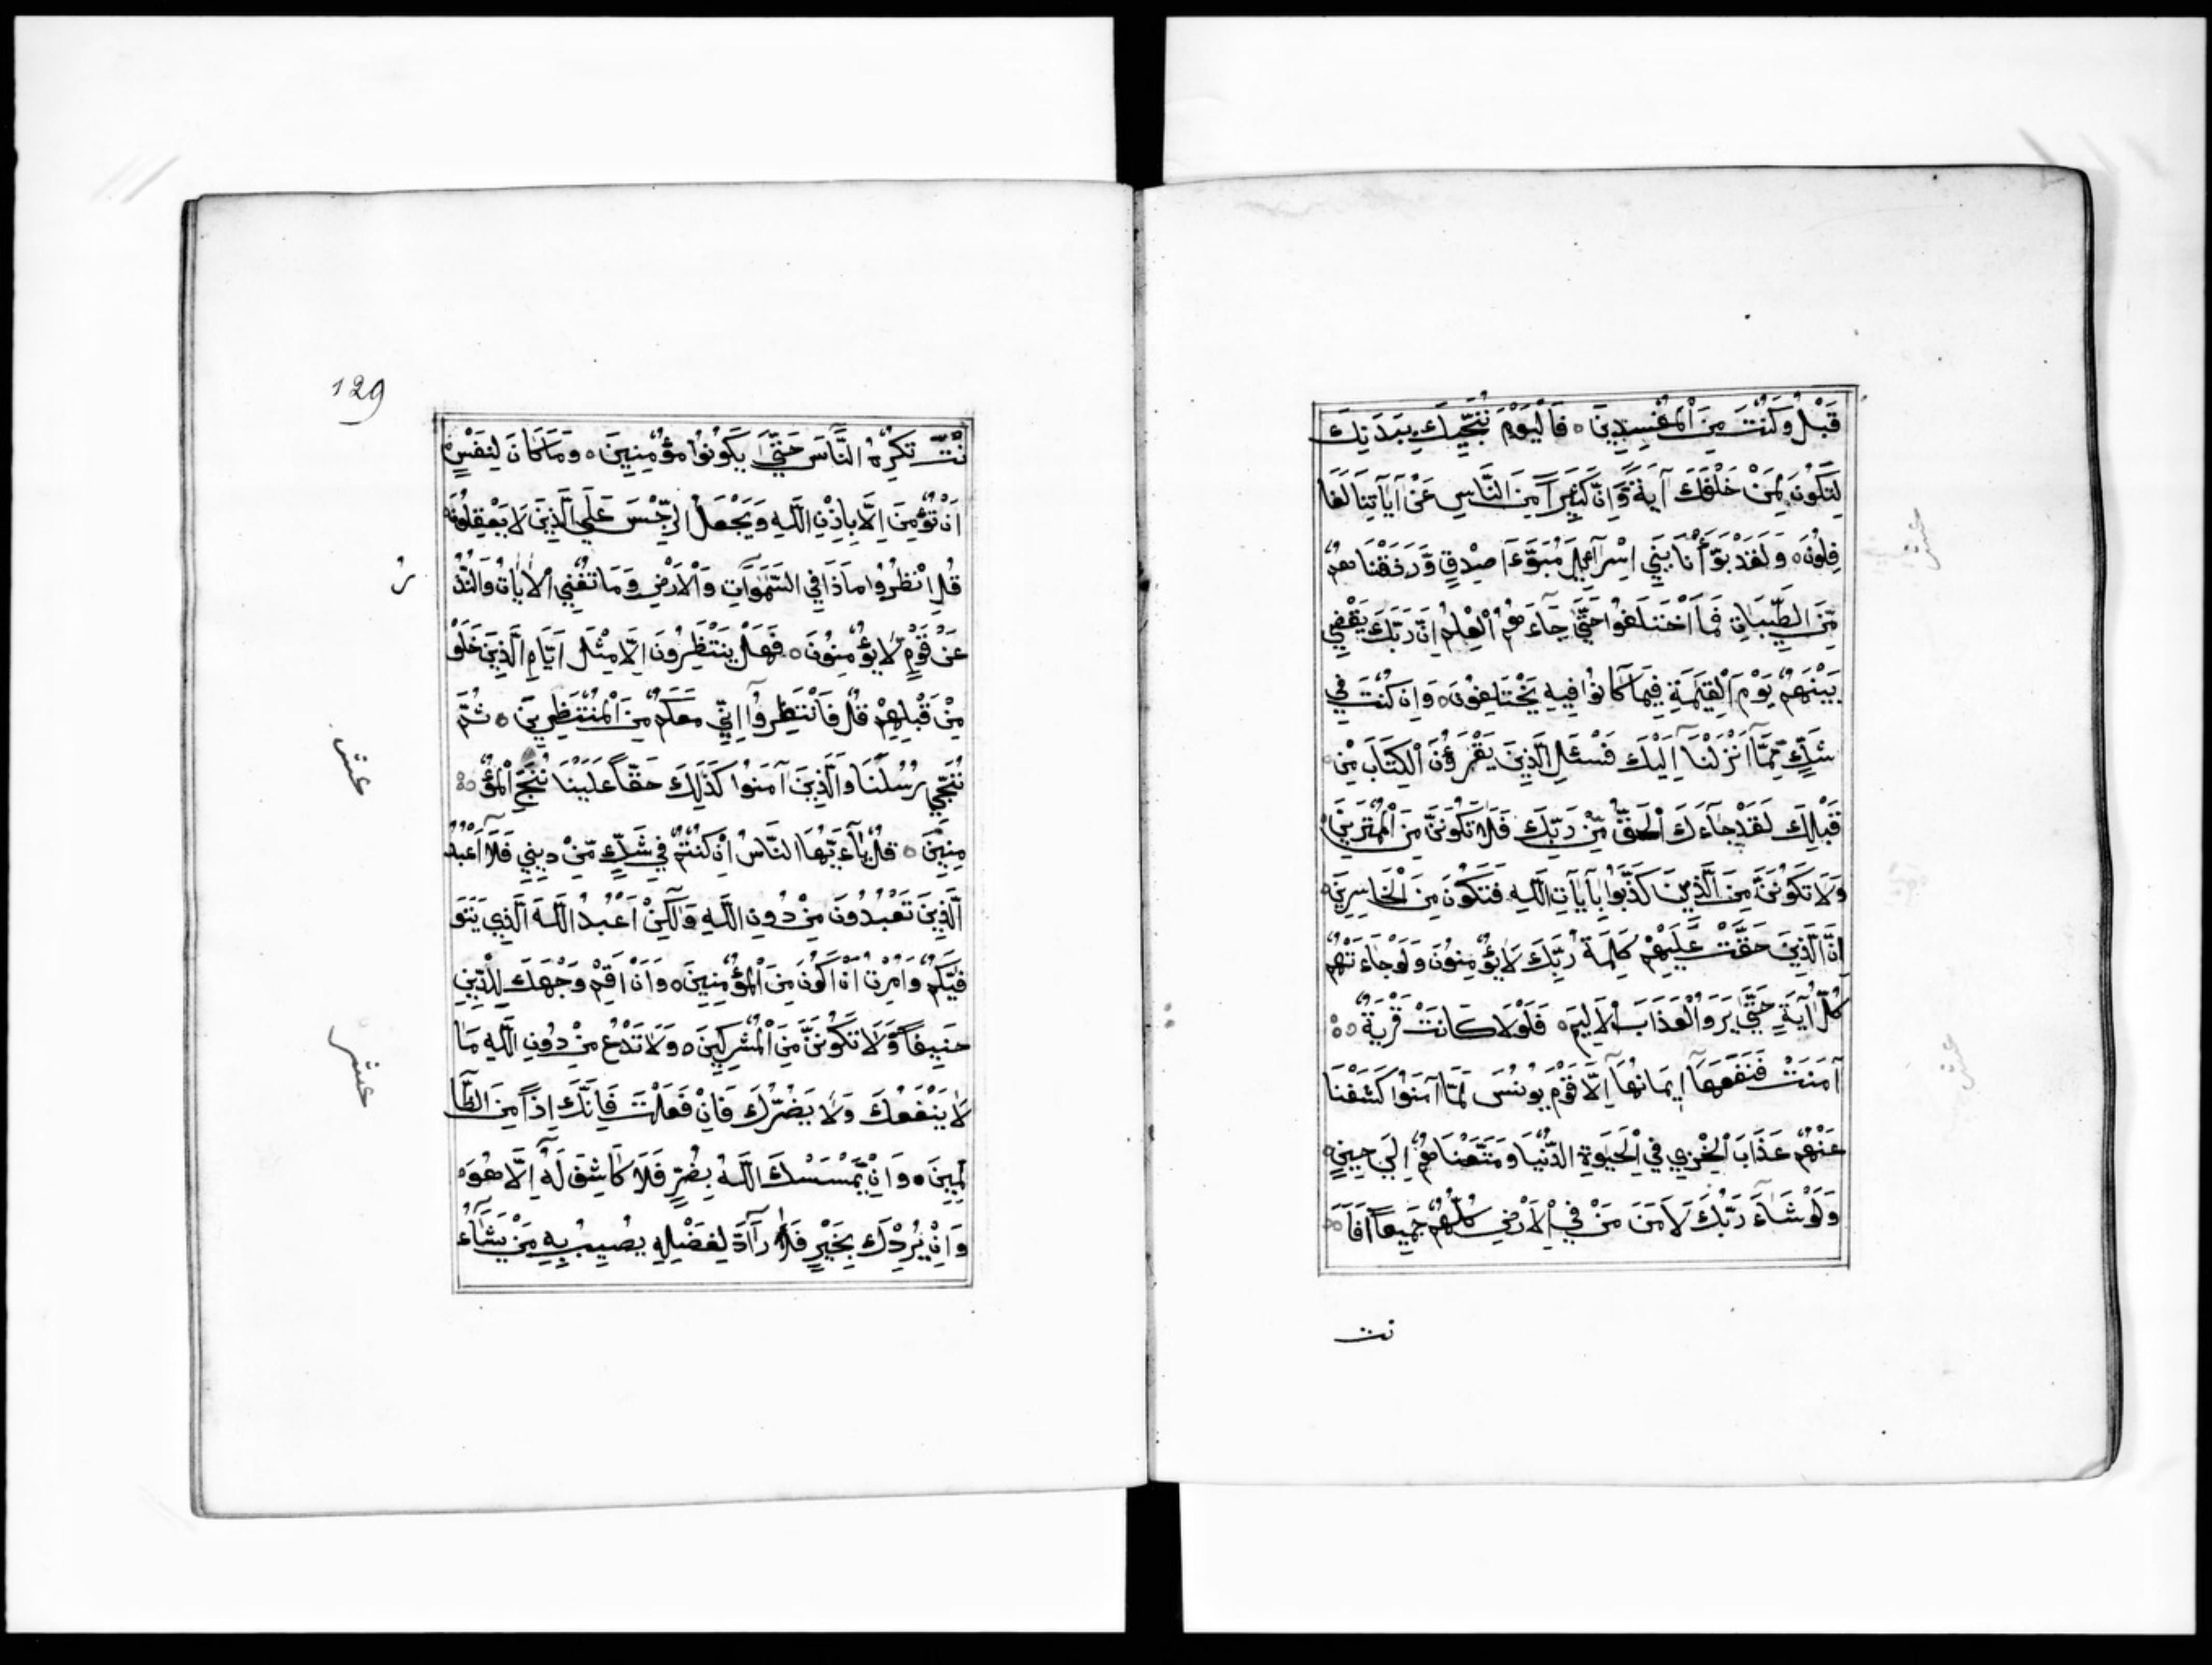 قَبْلُ وَكُنْتَ مِنَ الْمُفْسِدِينَ ه فَالْيَوْمَ نُنَجِّيكَ بِبَدَنِكَ
لِتَكُونَ لِمَنْ خَلْفَكَ آيَةً وَإِنَّ كَثِيرًا مِنَ النَّاسِ عَنْ آيَآتِنَا لَغَا
فِلُونَ ه وَلَقَدْ بَوَّأْنَا بَنِي اِسْرَآئِيلَ مُبَوَّءَا صِدْقٍ وَّرَزَقْنَاهُمْ
مِّنَ الطَّيِّبَاتِ فَمَا اخْتَلَفُوا حَتَّى جَآءَهُمُ الْعِلْمُ اِنَّ رَبَّكَ يَقْضِي
بَيْنَهُمْ يَوْمَ الْقِيَمَةِ فِيمَا كَانُوا فِيهِ يَخْتَلِفُونَ ه وَاِنْ كُنْتَ فِي
شَكٍّ مِّمَّا اَنْزَلْنَا اِلَيْكَ فَسْئَلِ الَّذِينَ يَقْرَؤُنَ الْكِتَابَ مِنْ
قَبْلِكَ لَقَدْ جَآءَكَ الْحَقُّ مِّنْ رَبِّكَ فَلَا تَكُونَنَّ مِنَ الْمُمْتَرِينَ ه
وَلَا تَكُونَنَّ مِنَ الَّذِينَ كَذَّبُوا بِآيَاتِ اللَّهِ فَتَكُونَ مِنَ الْخَاسِرِينَ ه
اِنَّ الَّذِينَ حَقَّتْ عَلَيْهِمْ كَلِمَةُ رَبِّكَ لَا يُؤْمِنُونَ وَلَوْ جَاءَتْهُمْ
كُلُّ آيَةٍ حَتَّى يَرَوُا الْعَذَابَ الْاَلِيمَ ه فَلَوْلَا كَانَتْ قَرْيَةٌ
آمَنَتْ فَنَفَعَهَآ اِيمَانُهَآ اِلَّا قَوْمَ يُونُسَ لَمَّا آمَنُوا كَشَفْنَا
عَنْهُمْ عَذَابَ الْخِزْيِ فِي الْحَيَوةِ الدُّنْيَا وَمَتَّعْنَاهُمْ اِلَى حِينٍ ه
وَلَوْ شَآءَ رَبُّكَ لَاَمَنَ مَنْ فِي الْاَرْضِ كُلُّهُمْ جَمِيعًا اَفَاَ
نت
129
نْتَ تُكْرِهُ النَّاسَ حَتَّى يَكُونُوا مُؤْمِنِينَ ه وَمَا كَانَ لِنَفْسٍ
اَنْ تُؤْمِنَ اِلَّا بِاِذْنِ اللَّهِ وَيَجْعَلُ الرِّجْسَ عَلَى الَّذِينَ لَا يَعْقِلُونَ ه
قُلِ انْظُرُوا مَاذَا فِي السَّمَوَاتِ وَالْاَرْضِ وَمَا تُغْنِي الْاٰيَاتُ وَالنُّذُ
عَنْ قَوْمٍ لَا يُؤْمِنُونَ ه فَهَلْ يَنْتَظِرُونَ اِلَّا مِثْلَ اَيَّامِ الَّذِينَ خَلَوْ
مِنْ قَبْلِهِمْ قُلْ فَانْتَظِرُوا اِنِّي مَعَكُمْ مِنَ الْمُنْتَظِرِينَ ه ثُمَّ
نُنَجِّي رُسُلَنَا وَالَّذِينَ آمَنُوا كَذَلِكَ حَقًّا عَلَيْنَا نُنْجِ الْمُؤْ
مِنِينَ ه قُلْ يَآءَيُّهَا النَّاسُ اِنْ كُنْتُمْ فِي شَكٍّ مِّنْ دِينِي فَلَا اَعْبُدُ
الَّذِينَ تَعْبُدُونَ مِنْ دُونِ اللَّهِ وَلَكِنْ اَعْبُدُ اللَّهَ الَّذِي يَتَوَ
فَّيكُمْ وَاُمِرْتُ اَنْ اَكُونَ مِنَ الْمُؤْمِنِينَ ه وَاَنْ اَقِمْ وَجْهَكَ لِلدِّينِ
حَنِيفًا وَّلَا تَكُونَنَّ مِنَ الْمُشْرِكِينَ ه وَلَا تَدْعُ مِنْ دُونِ اللَّهِ مَا
لَا يَنْفَعُكَ وَلَا يَضُرُّكَ فَاِنْ فَعَلْتَ فَاِنَّكَ اِذًا مِنَ الظَّا
لِمِينَ ه وَاِنْ يَّمْسَسْكَ اللَّهُ بِضُرٍّ فَلَا كَاشِفَ لَهُ اِلَّا هُوَ ه
وَاِنْ يُرِدْكَ بِخَيْرٍ فَلَا رَآدَّ لِفَضْلِهِ يُصِيبُ بِهِ مَنْ يَشَآءُ
ر
عشر
عشر